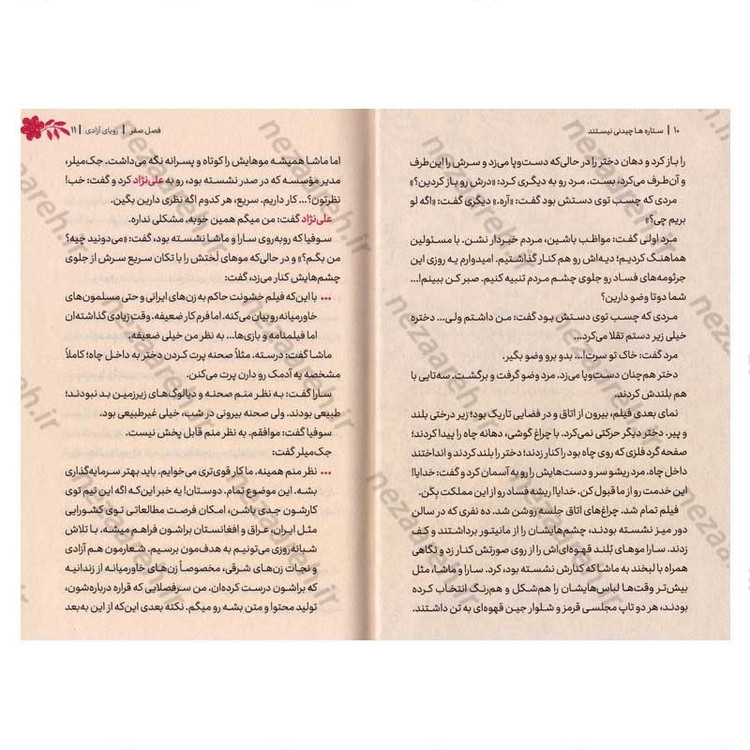 ۱۰ | ستاره‌ها چیدنی نیستند
را باز کرد و دهان دختر را در حالی‌که دست‌وپا می‌زد و سرش را این‌طرف
و آن‌طرف می‌کرد، بست. مرد رو به دیگری کرد: «درش رو باز کردین؟»
مردی که چسب توی دستش بود گفت: «آره.» دیگری گفت: «اگه لو
بریم چی؟»
مرد اولی گفت: مواظب باشین، مردم خبردار نشن. با مسئولین
هماهنگ کردیم؛ دیه‌اش رو هم کنار گذاشتیم. امیدوارم یه روزی این
جرثومه‌های فساد رو جلوی چشم مردم تنبیه کنیم. صبر کن ببینم!...
شما دوتا وضو دارین؟
مردی که چسب توی دستش بود گفت: من داشتم ولی... دختره
خیلی زیر دستم تقلا می‌کرد...
مرد گفت: خاک تو سرت!... بدو برو وضو بگیر.
دختر هم‌چنان دست‌وپا می‌زد. مرد وضو گرفت و برگشت. سه‌تایی با
هم بلندش کردند.
نمای بعدی فیلم، بیرون از اتاق و در فضایی تاریک بود؛ زیر درختی بلند
و پیر. دختر دیگر حرکتی نمی‌کرد. با چراغ گوشی، دهانه چاه را پیدا کردند؛
صفحه گرد فلزی که روی چاه بود را کنار زدند؛ دختر را بلند کردند و انداختند
داخل چاه. مرد ریشو سر و دست‌هایش را رو به آسمان کرد و گفت: خدایا!
این خدمت رو از ما قبول کن. خدایا! ریشه فساد رو از این مملکت بِکَن.
فیلم تمام شد. چراغ‌های اتاق جلسه روشن شد. ده نفری که در سالن
دور میز نشسته بودند، چشم‌هایشان را از مانیتور برداشتند و کف
زدند. سارا موهای بُلند قهوه‌ای‌اش را از روی صورتش کنار زد و نگاهی
همراه با لبخند به ماشا که کنارش نشسته بود، کرد. سارا و ماشا، مثل
بیش‌تر وقت‌ها لباس‌هایشان را هم‌شکل و هم‌رنگ انتخاب کرده
بودند، هر دو تاپ مجلسی قرمز و شلوار جین قهوه‌ای به تن داشتند.
فصل صفر | رویای آزادی | ۱۱
اما ماشا همیشه موهایش را کوتاه و پسرانه نگه می‌داشت. جک‌میلر،
مدیر مؤسسه که در صدر نشسته بود، رو به علی‌نژاد کرد و گفت: خب!
نظرتون؟... کار داریم. سریع، هر کدوم اگه نظری دارین بگین.
علی‌نژاد گفت: من میگم همین خوبه. مشکلی نداره.
سوفیا که روبه‌روی سارا و ماشا نشسته بود، گفت: «می‌دونید چیه؟
من بگم؟» و در حالی‌که موهای لَختش را با تکان سریع سرش از جلوی
چشم‌هایش کنار می‌زد، گفت:
... با این‌که فیلم خشونت حاکم به زن‌های ایرانی و حتی مسلمون‌های
خاورمیانه رو بیان می‌کنه، اما فرم کار ضعیفه. وقت زیادی گذاشته‌ان
اما فیلمنامه و بازی‌ها... به نظر من خیلی ضعیفه.
ماشا گفت: درسته. مثلاً صحنه پرت کردن دختر به داخل چاه؛ کاملاً
مشخصه یه آدمک رو دارن پرت می‌کنن.
سارا گفت: به نظر منم صحنه و دیالوگ‌های زیرزمین بد نبودند؛
طبیعی بودند. ولی صحنه بیرونی در شب، خیلی غیرطبیعی بود.
سوفیا گفت: موافقم. به نظر منم قابل پخش نیست.
جک‌میلر گفت:
... نظر منم همینه. ما کار قوی‌تری می‌خوایم. باید بهتر سرمایه‌گذاری
بشه. این موضوع تمام. دوستان! یه خبر این‌که اگه این تیم توی
کارشون جدی باشن، امکان فرصت مطالعاتی توی کشورایی
مثل ایران، عراق و افغانستان براشون فراهم میشه. با تلاش
شبانه‌روزی می‌تونیم به هدف‌مون برسیم. شعارمون هم آزادی
و نجات زن‌های شرقی، مخصوصاً زن‌های خاورمیانه از زندانیه
که براشون درست کرده‌ان. من سرفصلایی که قراره درباره‌شون،
تولید محتوا و متن بشه رو میگم. نکته بعدی این‌که از این به‌بعد
nezaareh.ir